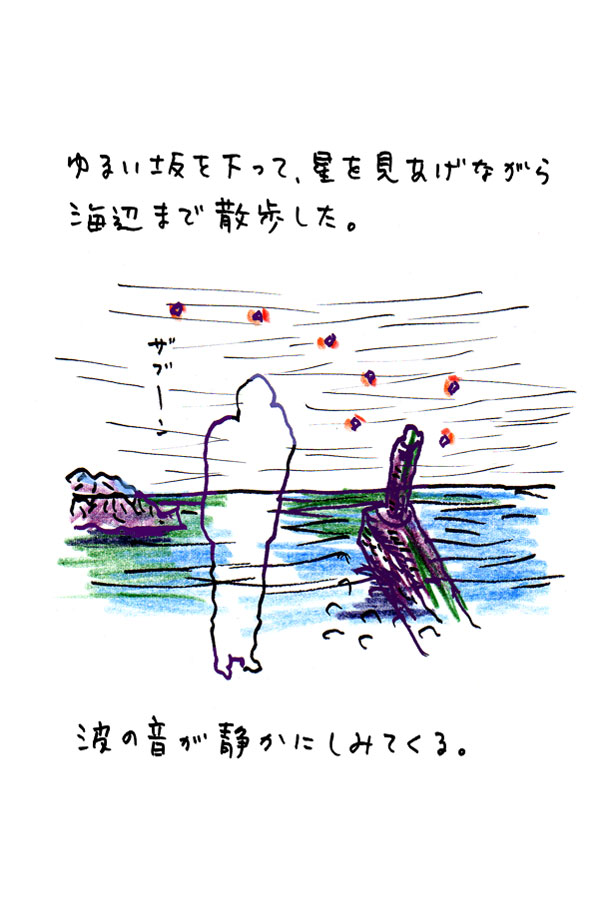 ゆるい坂を下って、星を見あげながら
海辺まで散歩した。
ザブーン
波の音が静かにしみてくる。